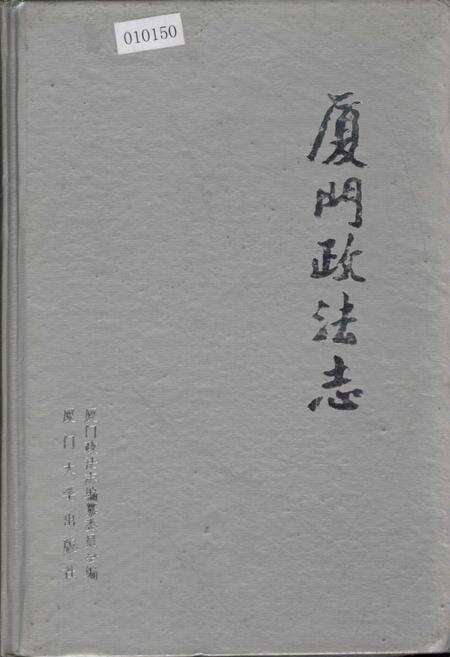 010150
厦門政法志
厦门政法志编纂委员会编
厦门大学出版社